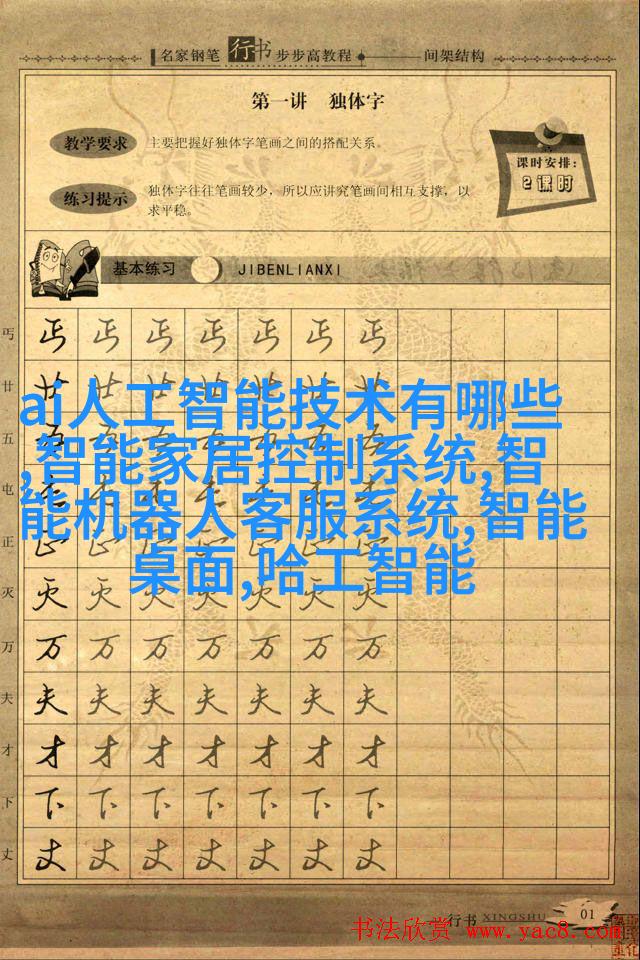 名家钢笔 行书 步步高教程 间架结构
第一讲 独体字
教学要求 主要把握好独体字笔画之间的搭配关系。
课时安排:
2课时
练习提示 独体字往往笔画较少，所以应讲究笔画间相互支撑，以
求平稳。
基本练习 JIBENLIANXI
丐 丐 丐 丐 丐 丐 丐 丐
廿 廿 廿 廿 廿 廿 廿 廿
ai人工智能技术有哪些
五 五 五 五 五 五 五 五
,智能家居控制系统,智
屯 屯 屯 屯 屯 屯 屯 屯
能机器人客服系统,智能
正 正 正 正 正 正 正 正
桌面,哈工智能
灭 灭 灭 灭 灭 灭 灭 灭
万 万 万 万 万 万 万 万
夫 夫 夫 夫 夫 夫 夫 夫
才 才 才 才 才 才 才 才
下 下 下 下 下 下 下 下
丈 丈 丈 丈 丈 丈 丈 丈
行书 XINGSHU 01
书法欣赏 www.yac8.com